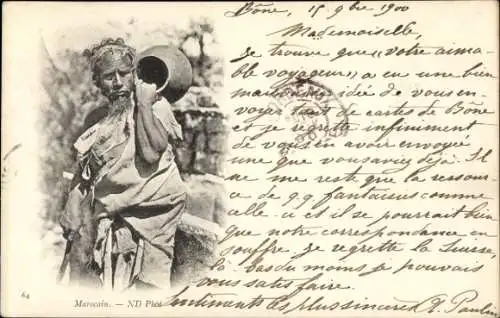 Bône, 15 9bre 1900
Mademoiselle,
Je trouve que "votre aima-
ble voyageur" a eu une bien
mauvaise idée de vous en-
voyer tant de cartes de Bône
et je regrette infiniment
de vous en avoir envoyé
une que vous aviez déjà. Il
ne me reste que la ressour-
ce de q.q fantaisies comme
celle-ci et il se pourrait bien
que notre correspondance en
souffre. Je regrette la Suisse,
là-bas du moins je pouvais
vous satisfaire.
Sentiments les plus sincères P. Paulin
64 Marocain. — ND Phot